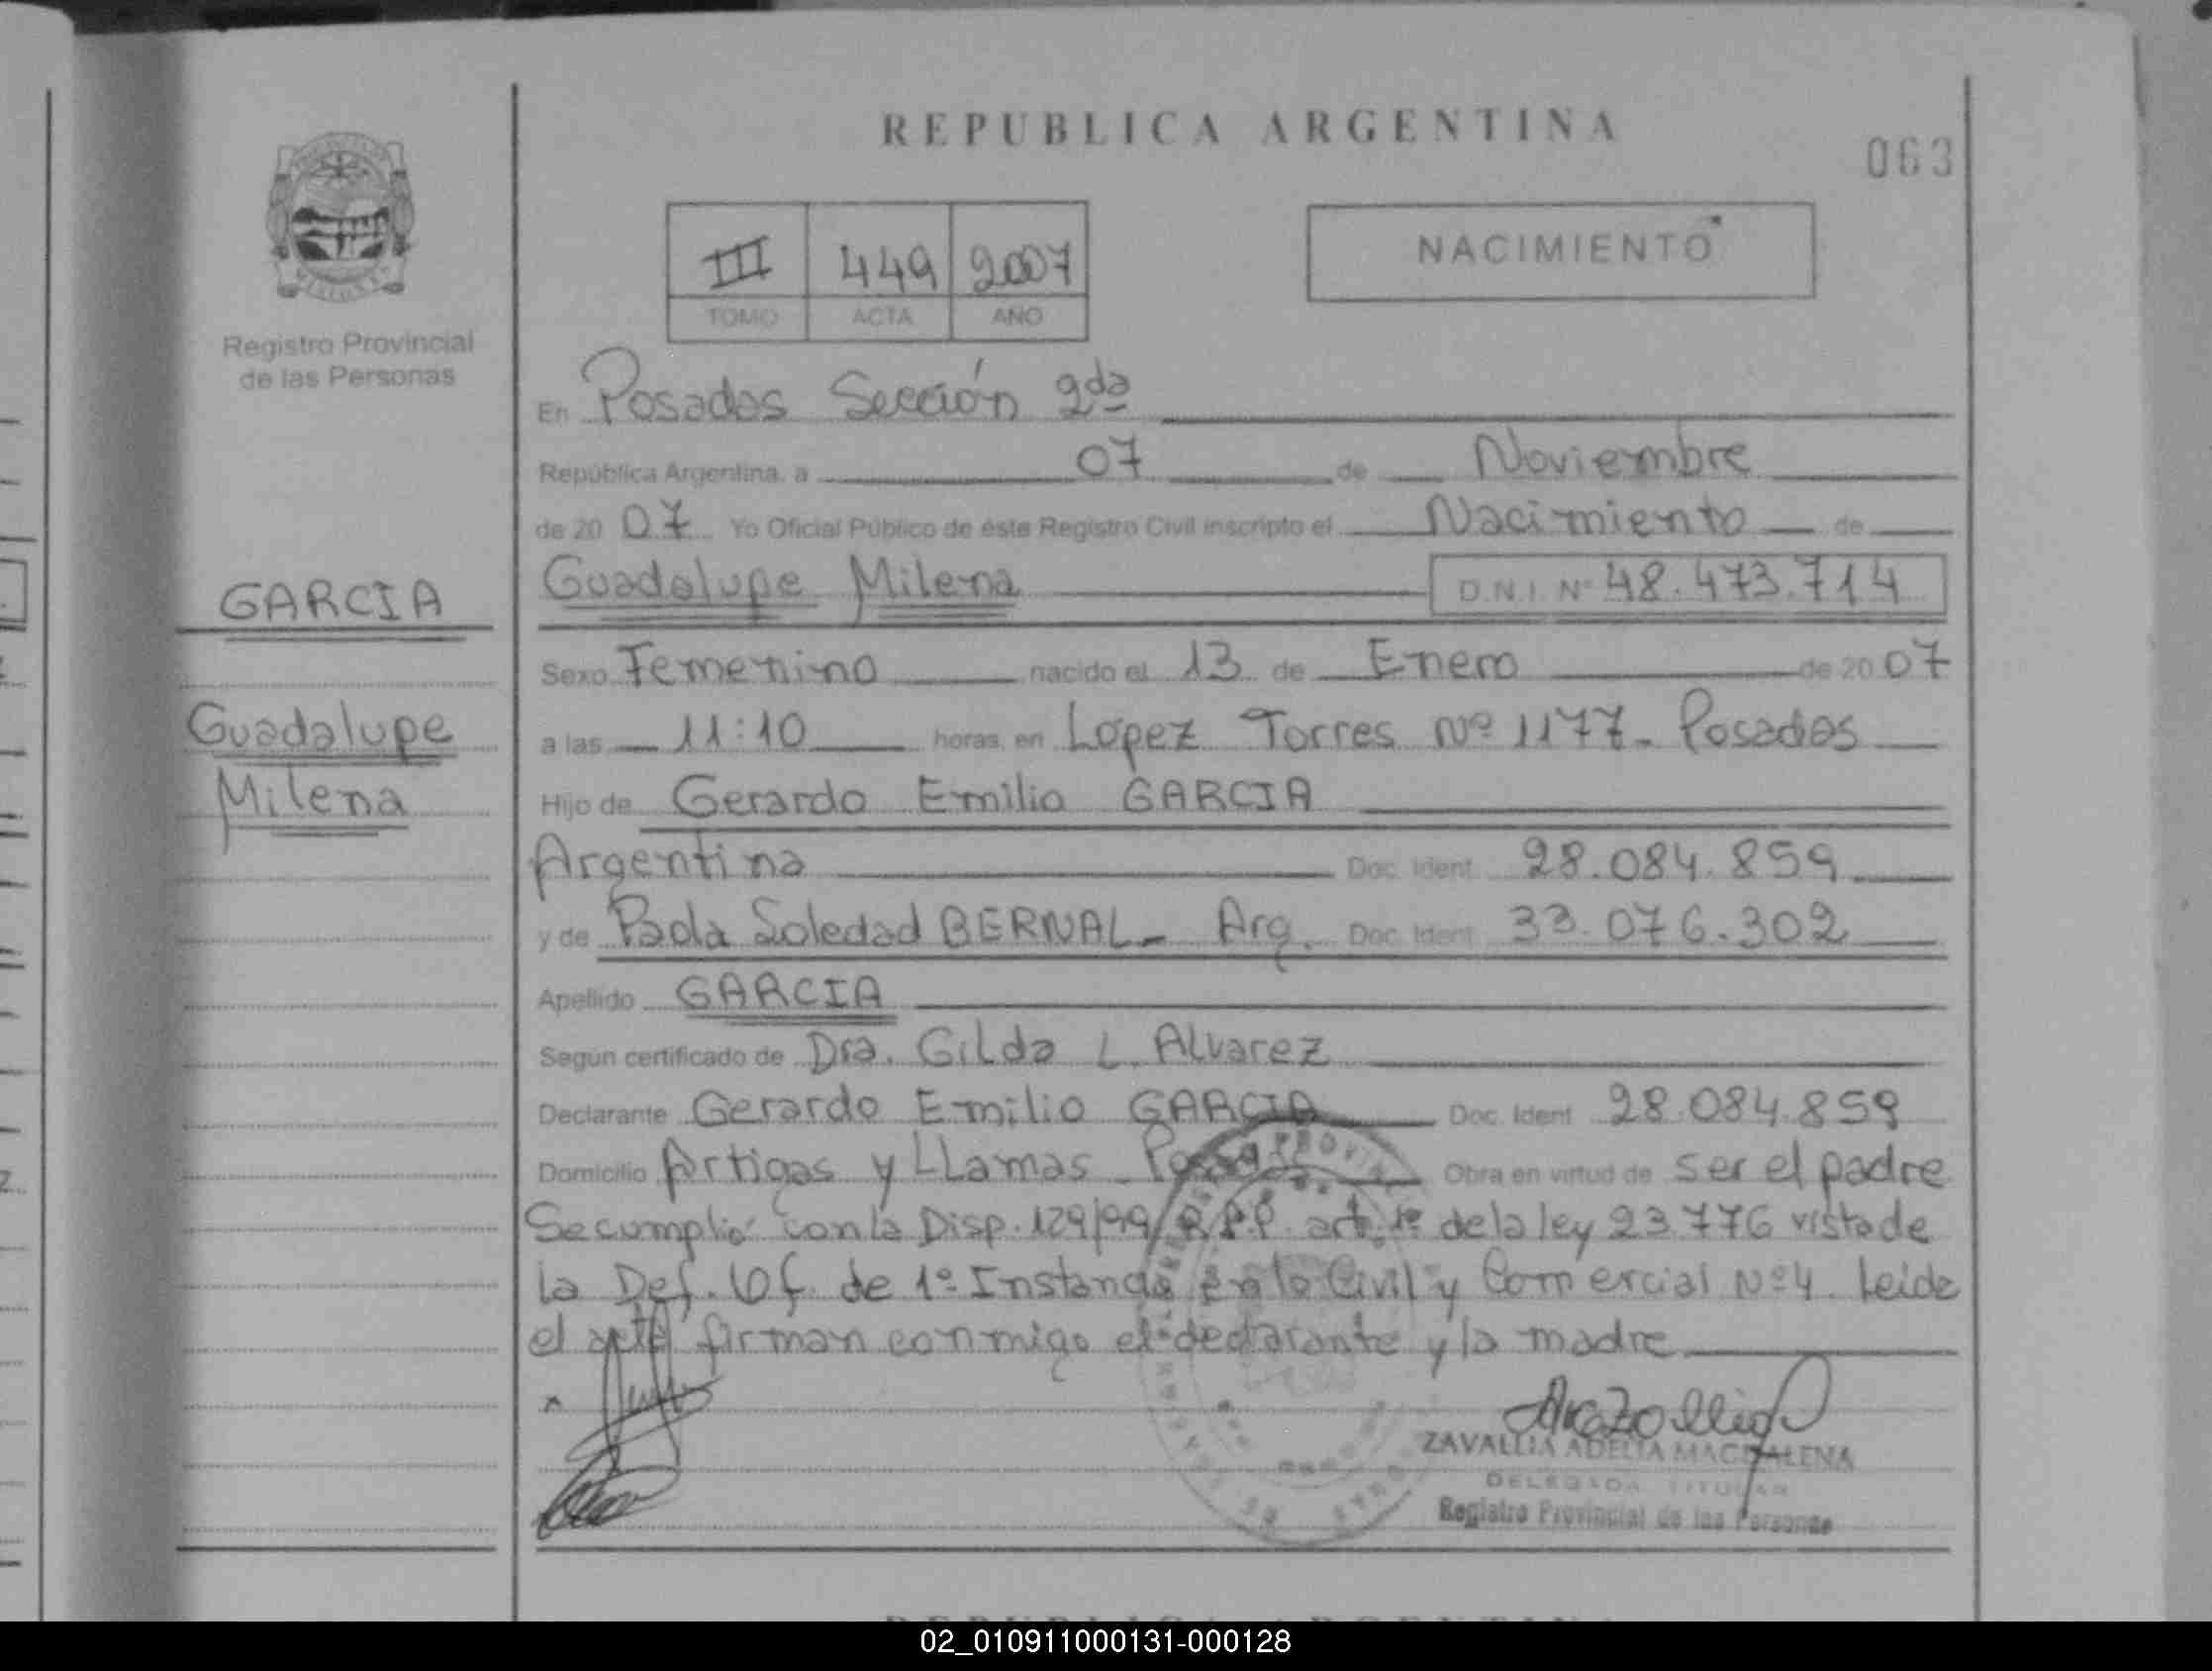 REPUBLICA ARGENTINA
063
III 449 2007
TOMO ACTA AÑO
NACIMIENTO
Registro Provincial
de las Personas
En Posadas Sección 2da
República Argentina, a 07 de Noviembre
de 20 07 Yo Oficial Público de éste Registro Civil inscripto el Nacimiento de
GARCIA
Guadalupe Milena D.N.I. Nº 48.473.714
Sexo Femenino nacido el 13 de Enero de 20 07
Guadalupe
Milena
a las 11:10 horas, en López Torres Nº 1177- Posadas
Hijo de Gerardo Emilio GARCIA
Argentina Doc. Ident. 28.084.859
y de Paola Soledad BERNAL- Arg. Doc. Ident. 33.076.302
Apellido GARCIA
Según certificado de Dra. Gilda L. Alvarez
Declarante Gerardo Emilio GARCIA Doc. Ident 28.084.859
Domicilio Artigas y LLamas Obra en virtud de ser el padre
Se cumplió con la Disp. 129/99 R.P.P. art. 1º de la ley 23.776 vista de
la Def. Of. de 1º Instancia en lo Civil y Comercial Nº 4. Leida
el acta firman conmigo el declarante y la madre
ZAVALLIA ADELIA MAGDALENA
DELEGADA TITULAR
Registro Provincial de las Personas
02_010911000131-000128